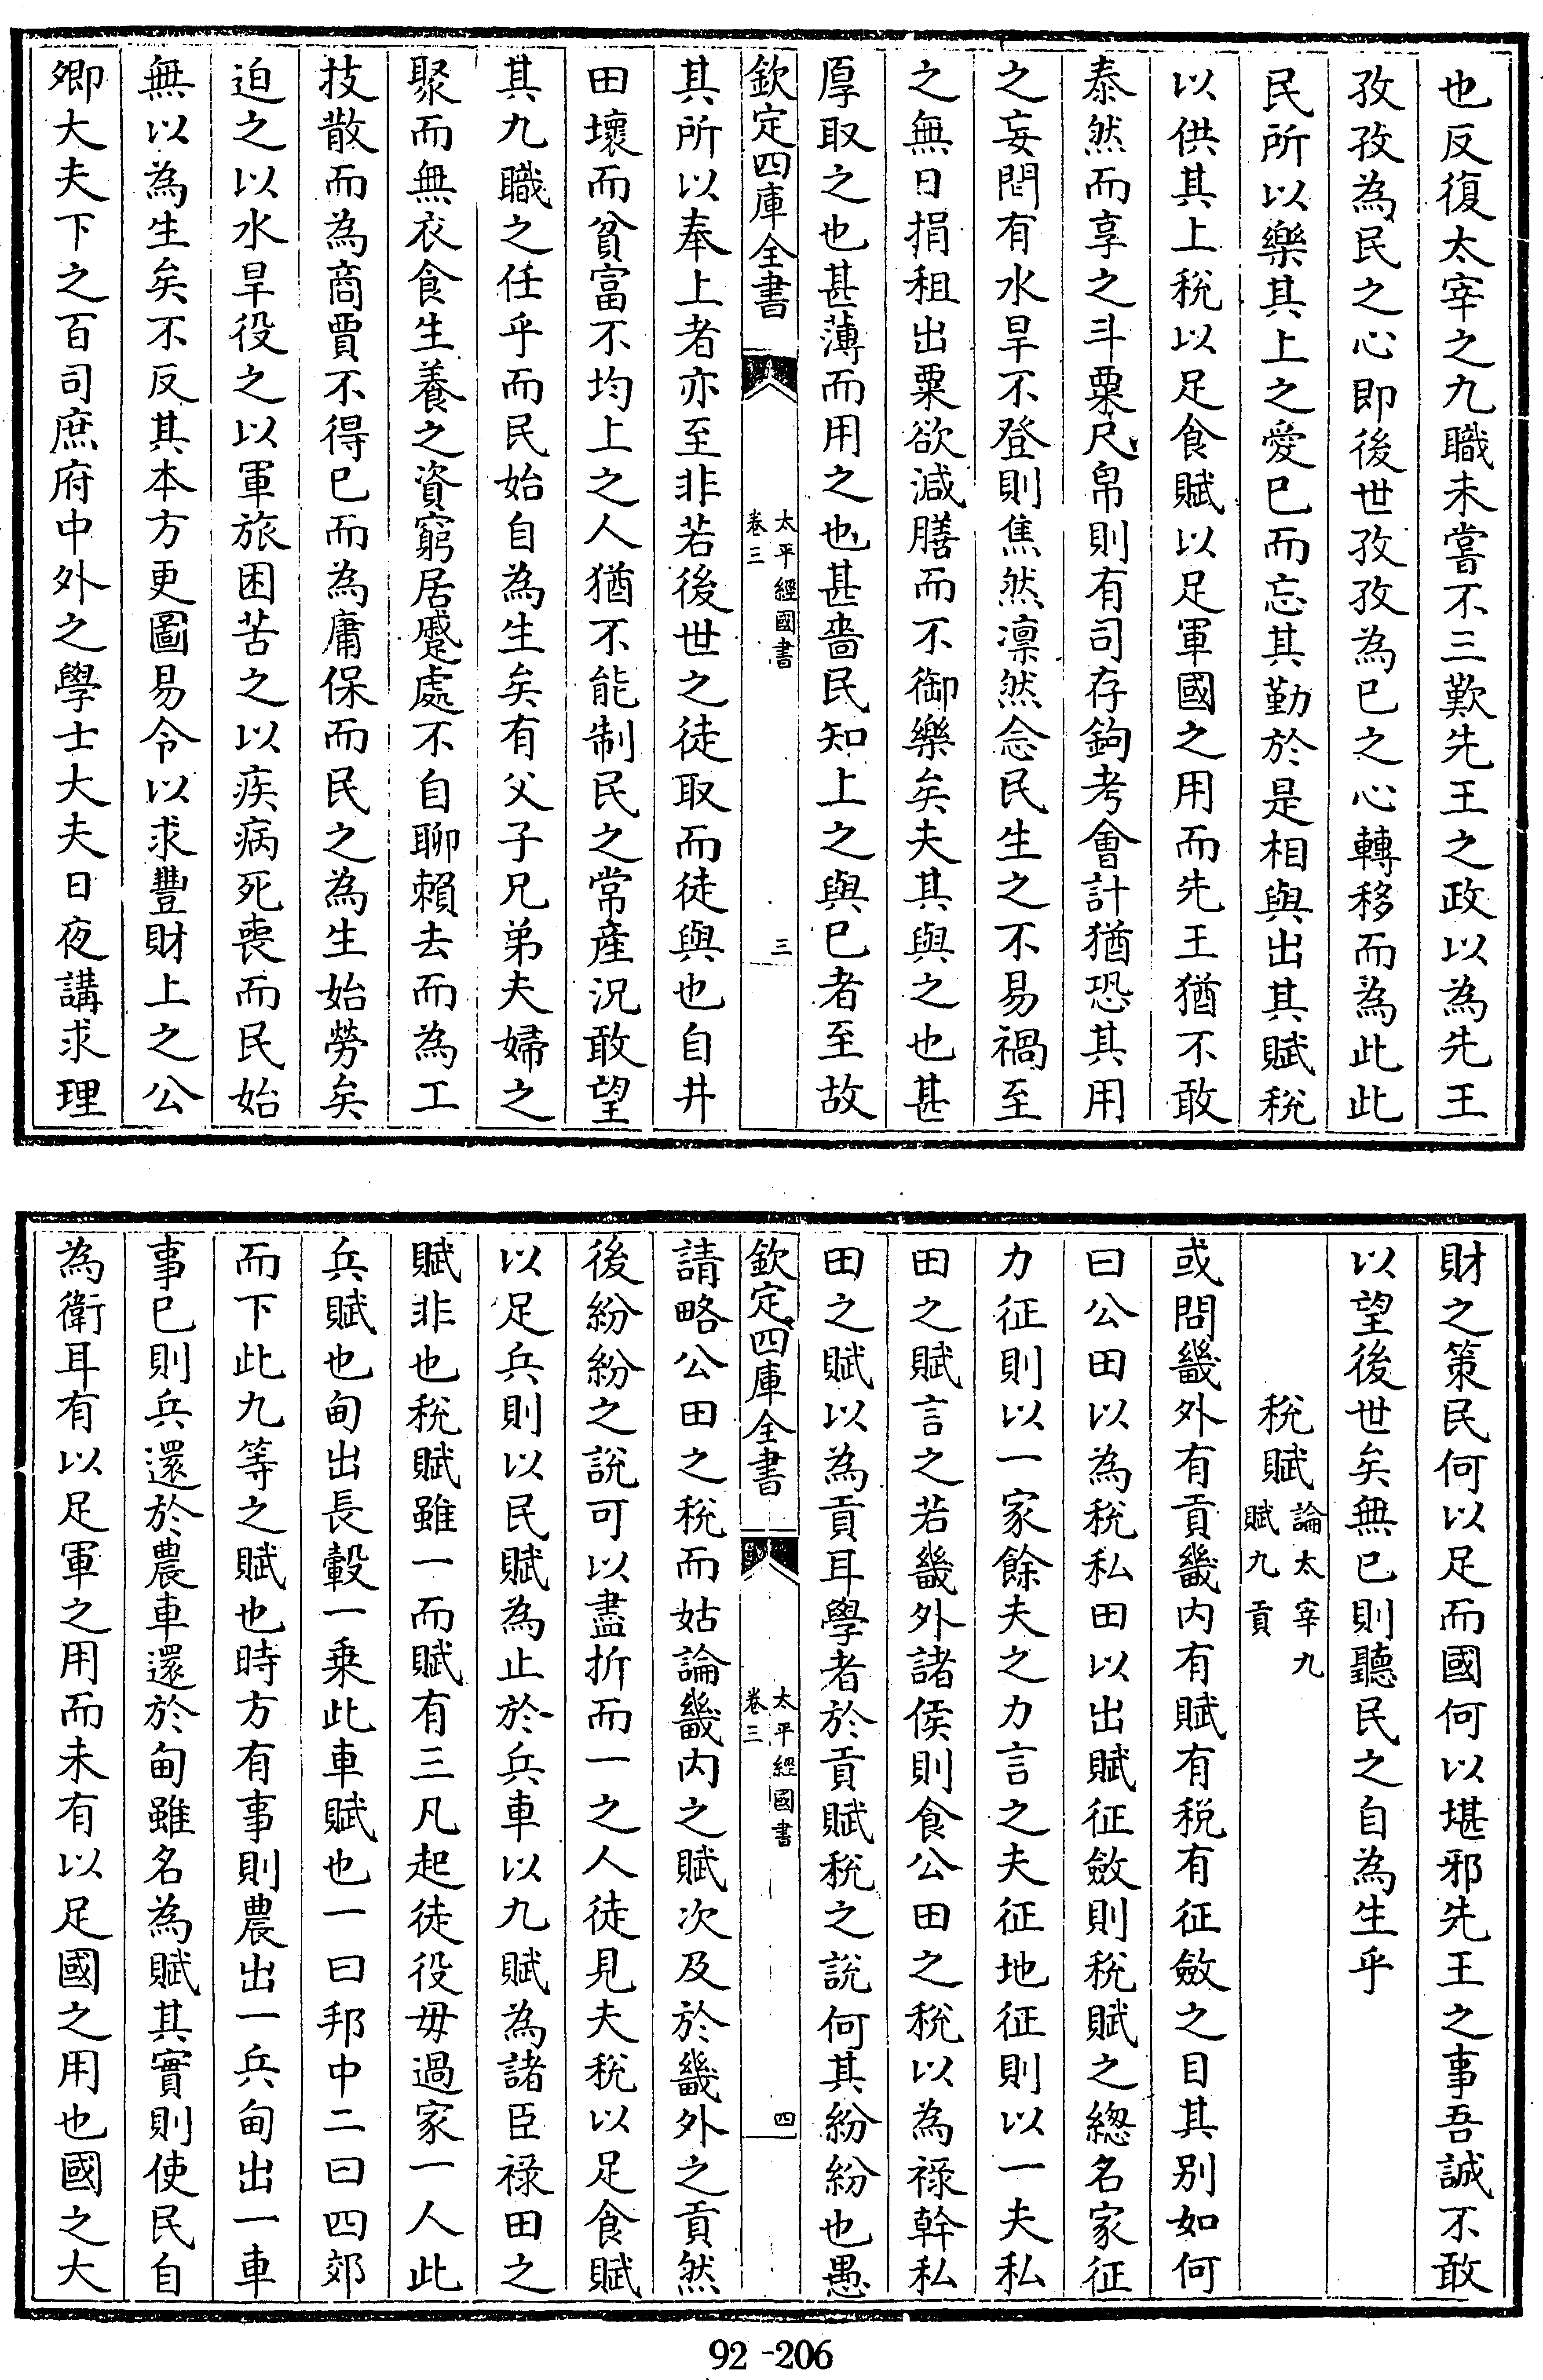 也反復太宰之九職未嘗不三歎先王之政以為先王
孜孜為民之心即後世孜孜為已之心轉移而為此此
民所以樂其上之愛已而忘其勤於是相與出其賦稅
以供其上稅以足食賦以足軍國之用而先王猶不敢
泰然而享之斗粟尺帛則有司存鉤考會計猶恐其用
之妄間有水旱不登則焦然凛然念民生之不易禍至
之無日捐租出粟欲減膳而不御樂矣夫其與之也甚
厚取之也甚薄而用之也甚嗇民知上之與已者至故
欽定四庫全書
太平經國書
卷三
三
其所以奉上者亦至非若後世之徒取而徒與也自井
田壞而貧富不均上之人猶不能制民之常產況敢望
其九職之任乎而民始自為生矣有父子兄弟夫婦之
聚而無衣食生養之資窮居蹙處不自聊賴去而為工
技散而為商賈不得已而為庸保而民之為生始勞矣
迫之以水旱役之以軍旅困苦之以疾病死喪而民始
無以為生矣不反其本方更圖易令以求豐財上之公
卿大夫下之百司庶府中外之學士大夫日夜講求理
財之策民何以足而國何以堪邪先王之事吾誠不敢
以望後世矣無已則聽民之自為生乎
稅賦論太宰九
賦九貢
或問畿外有貢畿内有賦有稅有征斂之目其别如何
曰公田以為稅私田以出賦征斂則稅賦之總名家征
力征則以一家餘夫之力言之夫征地征則以一夫私
田之賦言之若畿外諸侯則食公田之稅以為禄幹私
田之賦以為貢耳學者於貢賦稅之說何其紛紛也愚
欽定四庫全書
太平經國書
卷三
四
請略公田之稅而姑論畿内之賦次及於畿外之貢然
後紛紛之說可以盡折而一之人徒見夫稅以足食賦
以足兵則以民賦為止於兵車以九賦為諸臣禄田之
賦非也稅賦雖一而賦有三凡起徒役毋過家一人此
兵賦也甸出長轂一乗此車賦也一曰邦中二曰四郊
而下此九等之賦也時方有事則農出一兵甸出一車
事已則兵還於農車還於甸雖名為賦其實則使民自
為衛耳有以足軍之用而未有以足國之用也國之大
92-206